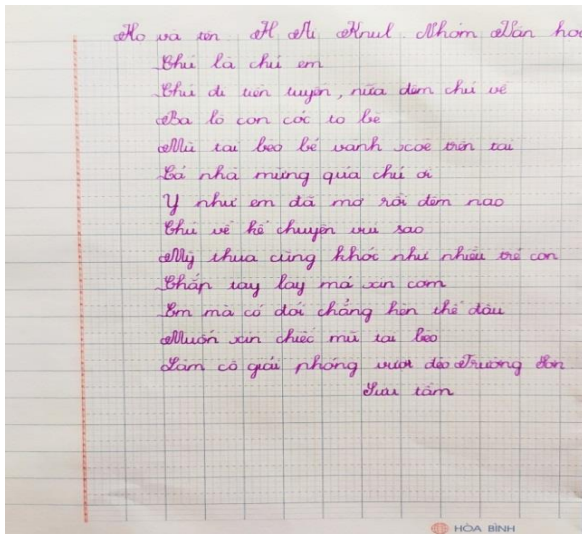 Họ và tên H Mi Knul. Nhóm Văn học
Chú là chú em
Chú đi tiền tuyến, nửa đêm chú về
Ba lô con cóc to bè
Mũ tai bèo bẻ vành xoè trên tai
Cả nhà mừng quá chú ơi
Y như em đã mơ rồi đêm nao
Chú về kể chuyện vui sao
Mỹ thua cũng khóc như nhiều trẻ con
Chắp tay lạy má xin cơm
Em mà có đói chẳng hèn thế đâu
Muốn xin chiếc mũ tai bèo
Làm cô giải phóng vượt đèo Trường Sơn
Sưu tầm
HÒA BÌNH